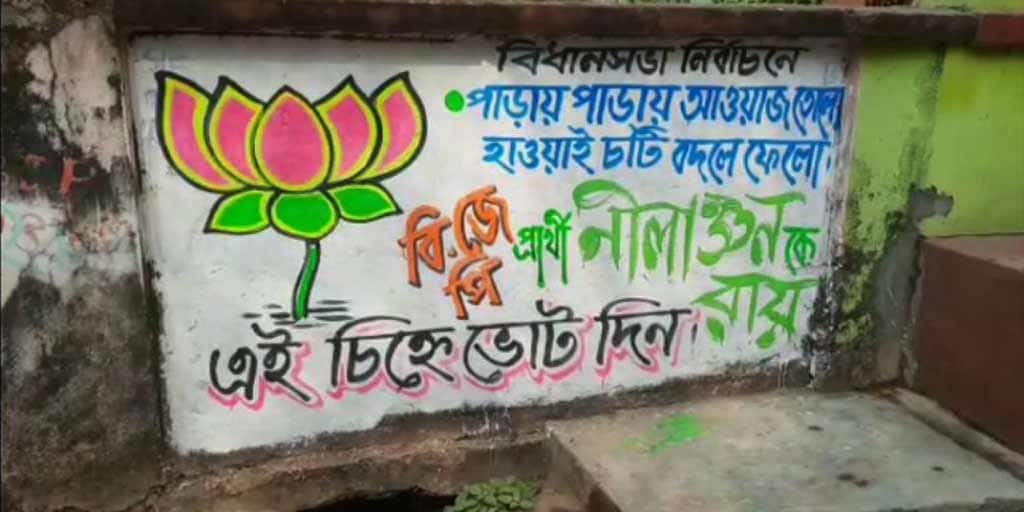 বিধানসভা নির্বাচনে
পাড়ায় পাড়ায় আওয়াজ তোলো
হাওয়াই চটি বদলে ফেলো।
বি.জে.পি প্রার্থী নীলাঞ্জন রায় কে
এই চিহ্নে ভোট দিন।